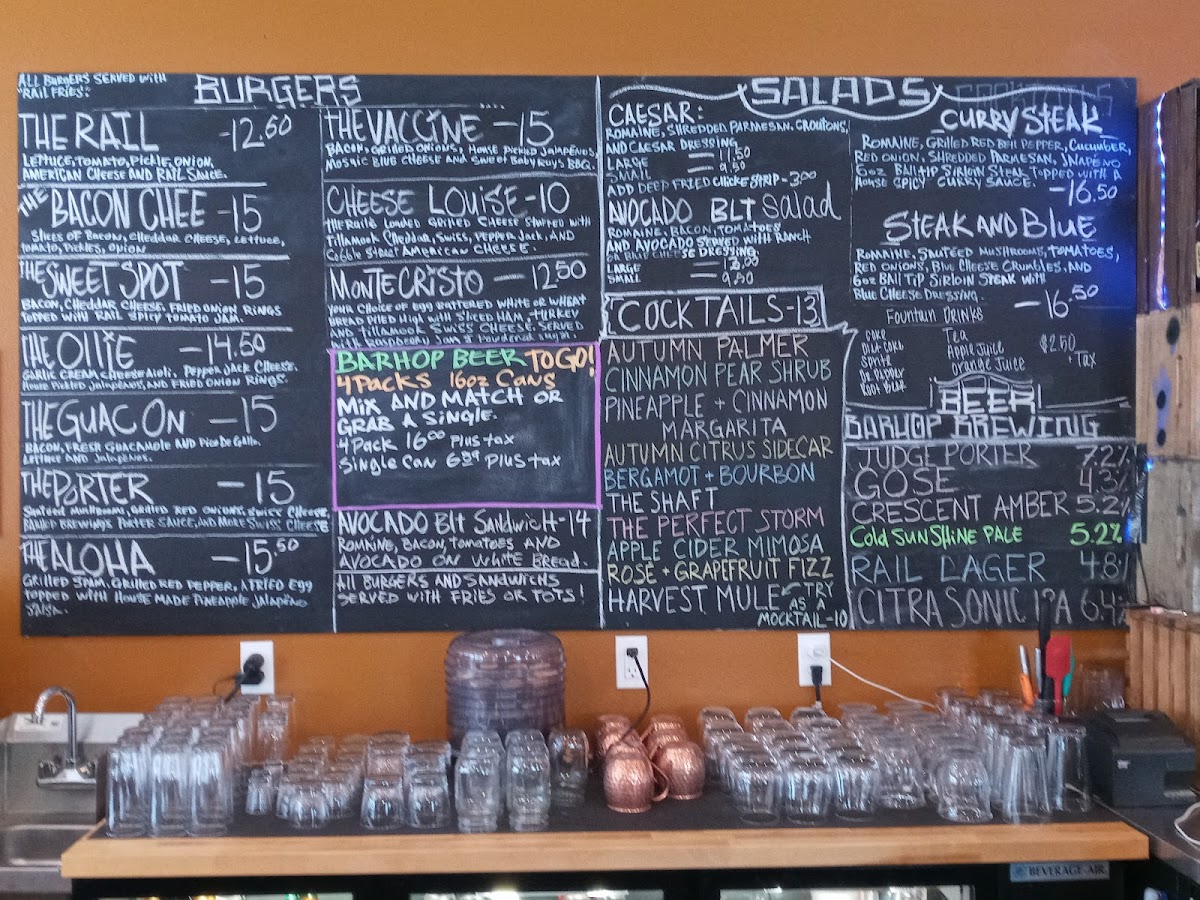 ALL BURGERS SERVED WITH
"RAIL FRIES".
BURGERS
THE RAIL -12.50
LETTUCE, TOMATO, PICKLE, ONION,
AMERICAN CHEESE AND RAIL SAUCE.
THE BACON CHEE -15
SLICES OF BACON, CHEDDAR CHEESE, LETTUCE,
TOMATO, PICKLES, ONION
THE SWEET SPOT -15
BACON, CHEDDAR CHEESE, FRIED ONION RINGS
TOPPED WITH RAIL SPICY TOMATO JAM.
THE OLLIE -14.50
GARLIC CREAM CHEESE AIOLI, PEPPER JACK CHEESE,
HOUSE PICKLED JALAPEÑOS, AND FRIED ONION RINGS.
THE GUAC ON -15
BACON, FRESH GUACAMOLE AND PICO DE GALLO,
LETTUCE AND JALAPEÑOS.
THE PORTER -15
SAUTEED MUSHROOMS, GRILLED RED ONIONS, SWISS CHEESE
BARHOP BREWINGS PORTER SAUCE, AND MORE SWISS CHEESE
THE ALOHA -15.50
GRILLED SPAM, GRILLED RED PEPPER, A FRIED EGG
TOPPED WITH HOUSE MADE PINEAPPLE JALAPEÑO
SALSA.
THE VACCINE -15
BACON, GRILLED ONIONS, HOUSE PICKLED JALAPEÑOS,
MOSAIC BLUE CHEESE AND SWEET BABY RAY'S BBQ.
CHEESE LOUISE -10
THE RAILS LOADED GRILLED CHEESE STUFFED WITH
TILLAMOOK CHEDDAR, SWISS, PEPPER JACK, AND
COBBLE STREET AMERICAN CHEESE.
MONTE CRISTO - 12.50
YOUR CHOICE OF EGG BATTERED WHITE OR WHEAT
BREAD PILED HIGH WITH SLICED HAM, TURKEY
& TILLAMOOK SWISS CHEESE. SERVED
WITH RASPBERRY JAM & POWDERED SUGAR.
BARHOP BEER TO GO!
4 PACKS 16oz CANS
MIX AND MATCH OR
GRAB A SINGLE.
4 PACK 16.00 PLUS TAX
SINGLE CAN 6.99 PLUS TAX
AVOCADO Blt SANDWICH-14
ROMAINE, BACON, TOMATOES AND
AVOCADO ON WHITE BREAD.
All BURGERS AND SANDWICHS
SERVED WITH FRIES OR TOTS!
SALADS
CAESAR:
ROMAINE, SHREDDED PARMESAN, CROUTONS,
AND CAESAR DRESSING
LARGE — 11.50
SMALL — 9.50
ADD DEEP FRIED CHICKE STRIP - 3.00
AVOCADO BLT salad
ROMAINE, BACON, TOMATOES
AND AVOCADO SERVED WITH RANCH
OR BLUE CHEESE DRESSING
LARGE
SMALL
COCKTAILS-13
AUTUMN PALMER
CINNAMON PEAR SHRUB
PINEAPPLE + CINNAMON
MARGARITA
AUTUMN CITRUS SIDECAR
BERGAMOT + BOURBON
THE SHAFT
THE PERFECT STORM
APPLE CIDER MIMOSA
ROSÉ + GRAPEFRUIT FIZZ
HARVEST MULE ← TRY
AS A
MOCKTAIL-10
CURRY STEAK
ROMAINE, GRILLED RED BELL PEPPER, CUCUMBER,
RED ONION, SHREDDED PARMESAN, JALAPEÑO
6oz BALL TIP SIRLOIN STEAK TOPPED WITH A
HOUSE SPICY CURRY SAUCE.
-16.50
STEAK AND BLUE
ROMAINE, SAUTÉED MUSHROOMS, TOMATOES,
RED ONIONS, BLUE CHEESE CRUMBLES, AND
6oz BALL TIP SIRLOIN SPEAK WITH
BLUE CHEESE DRESSING.
-16.50
FOUNTAIN DRINKS
COKE
DIET COKE
SPRITE
DR PEPPER
ROOT BEER
Tea
Apple Juice
Orange Juice
$2.50
+ Tax
BEER
BARHOP BREWING
JUDGE PORTER 7.2%
GOSE 4.3%
CRESCENT AMBER 5.2%
Cold SUNSHINE PALE 5.2%
RAIL LAGER 4.8%
CITRA SONIC IPA 6.4%
BEVERAGE-AIR